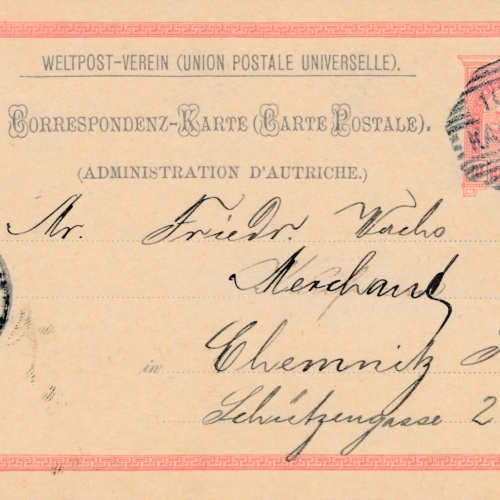 WELTPOST-VEREIN (UNION POSTALE UNIVERSELLE).
CORRESPONDENZ-KARTE (CARTE POSTALE).
(ADMINISTRATION D'AUTRICHE.)
Mr. Friedr. Wachs
Merchant
in Chemnitz
Schützengasse 2